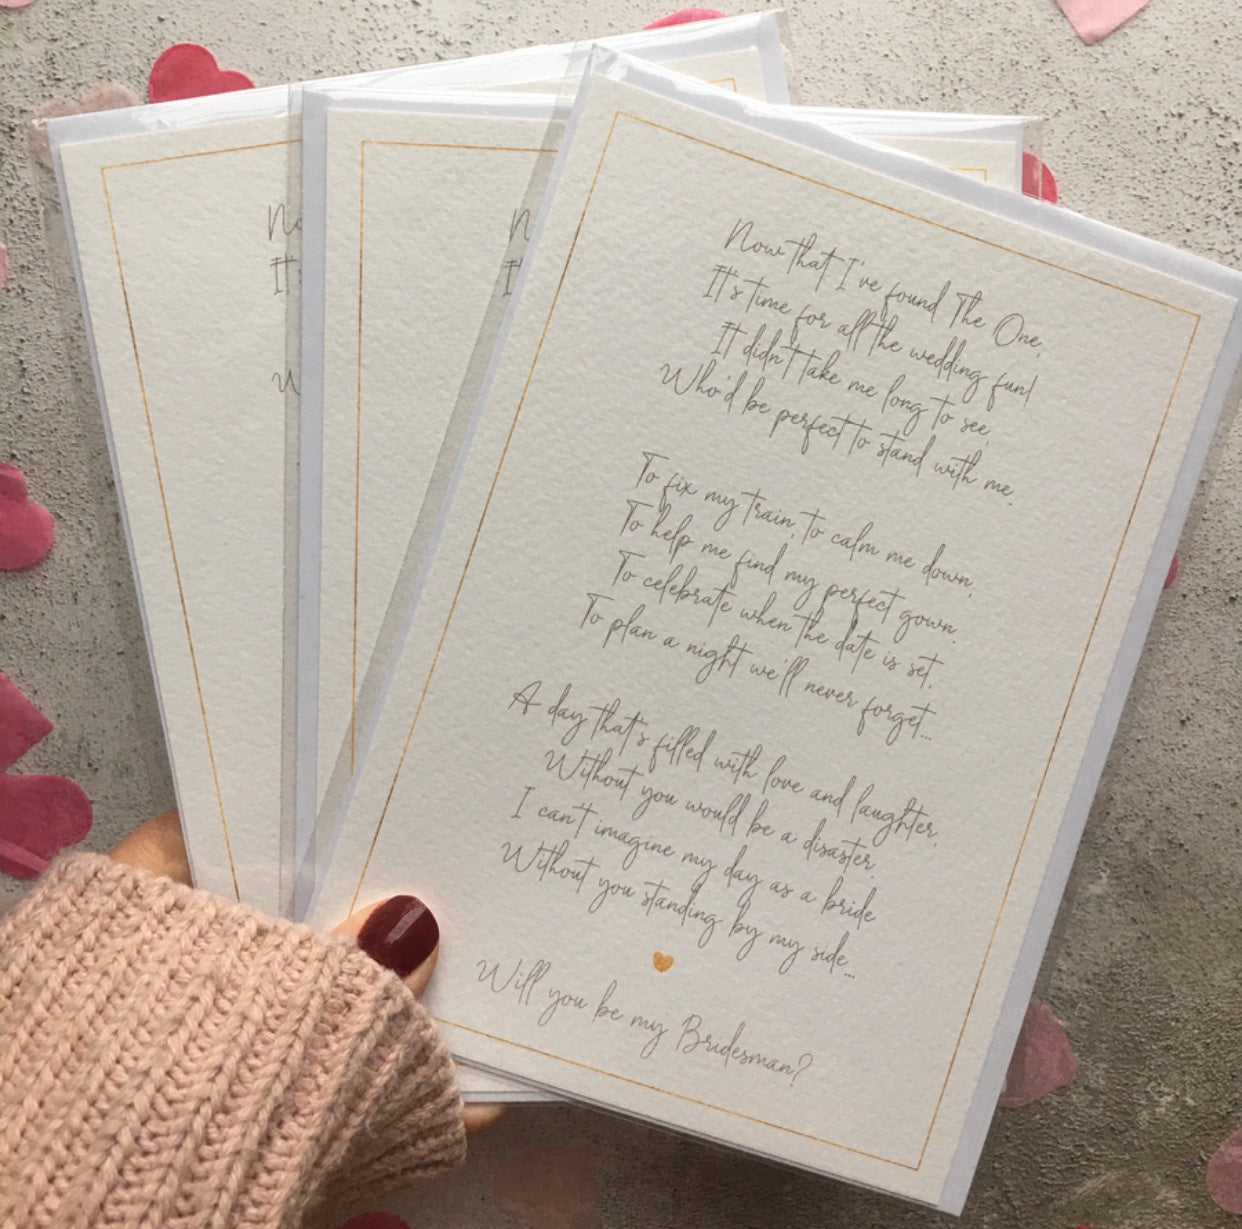 Now that I've found The One,
It's time for all the wedding fun!
It didn't take me long to see,
Who'd be perfect to stand with me.
To fix my train, to calm me down,
To help me find my perfect gown.
To celebrate when the date is set,
To plan a night we'll never forget...
A day that's filled with love and laughter,
Without you would be a disaster.
I can't imagine my day as a bride
Without you standing by my side...
Will you be my Bridesman?